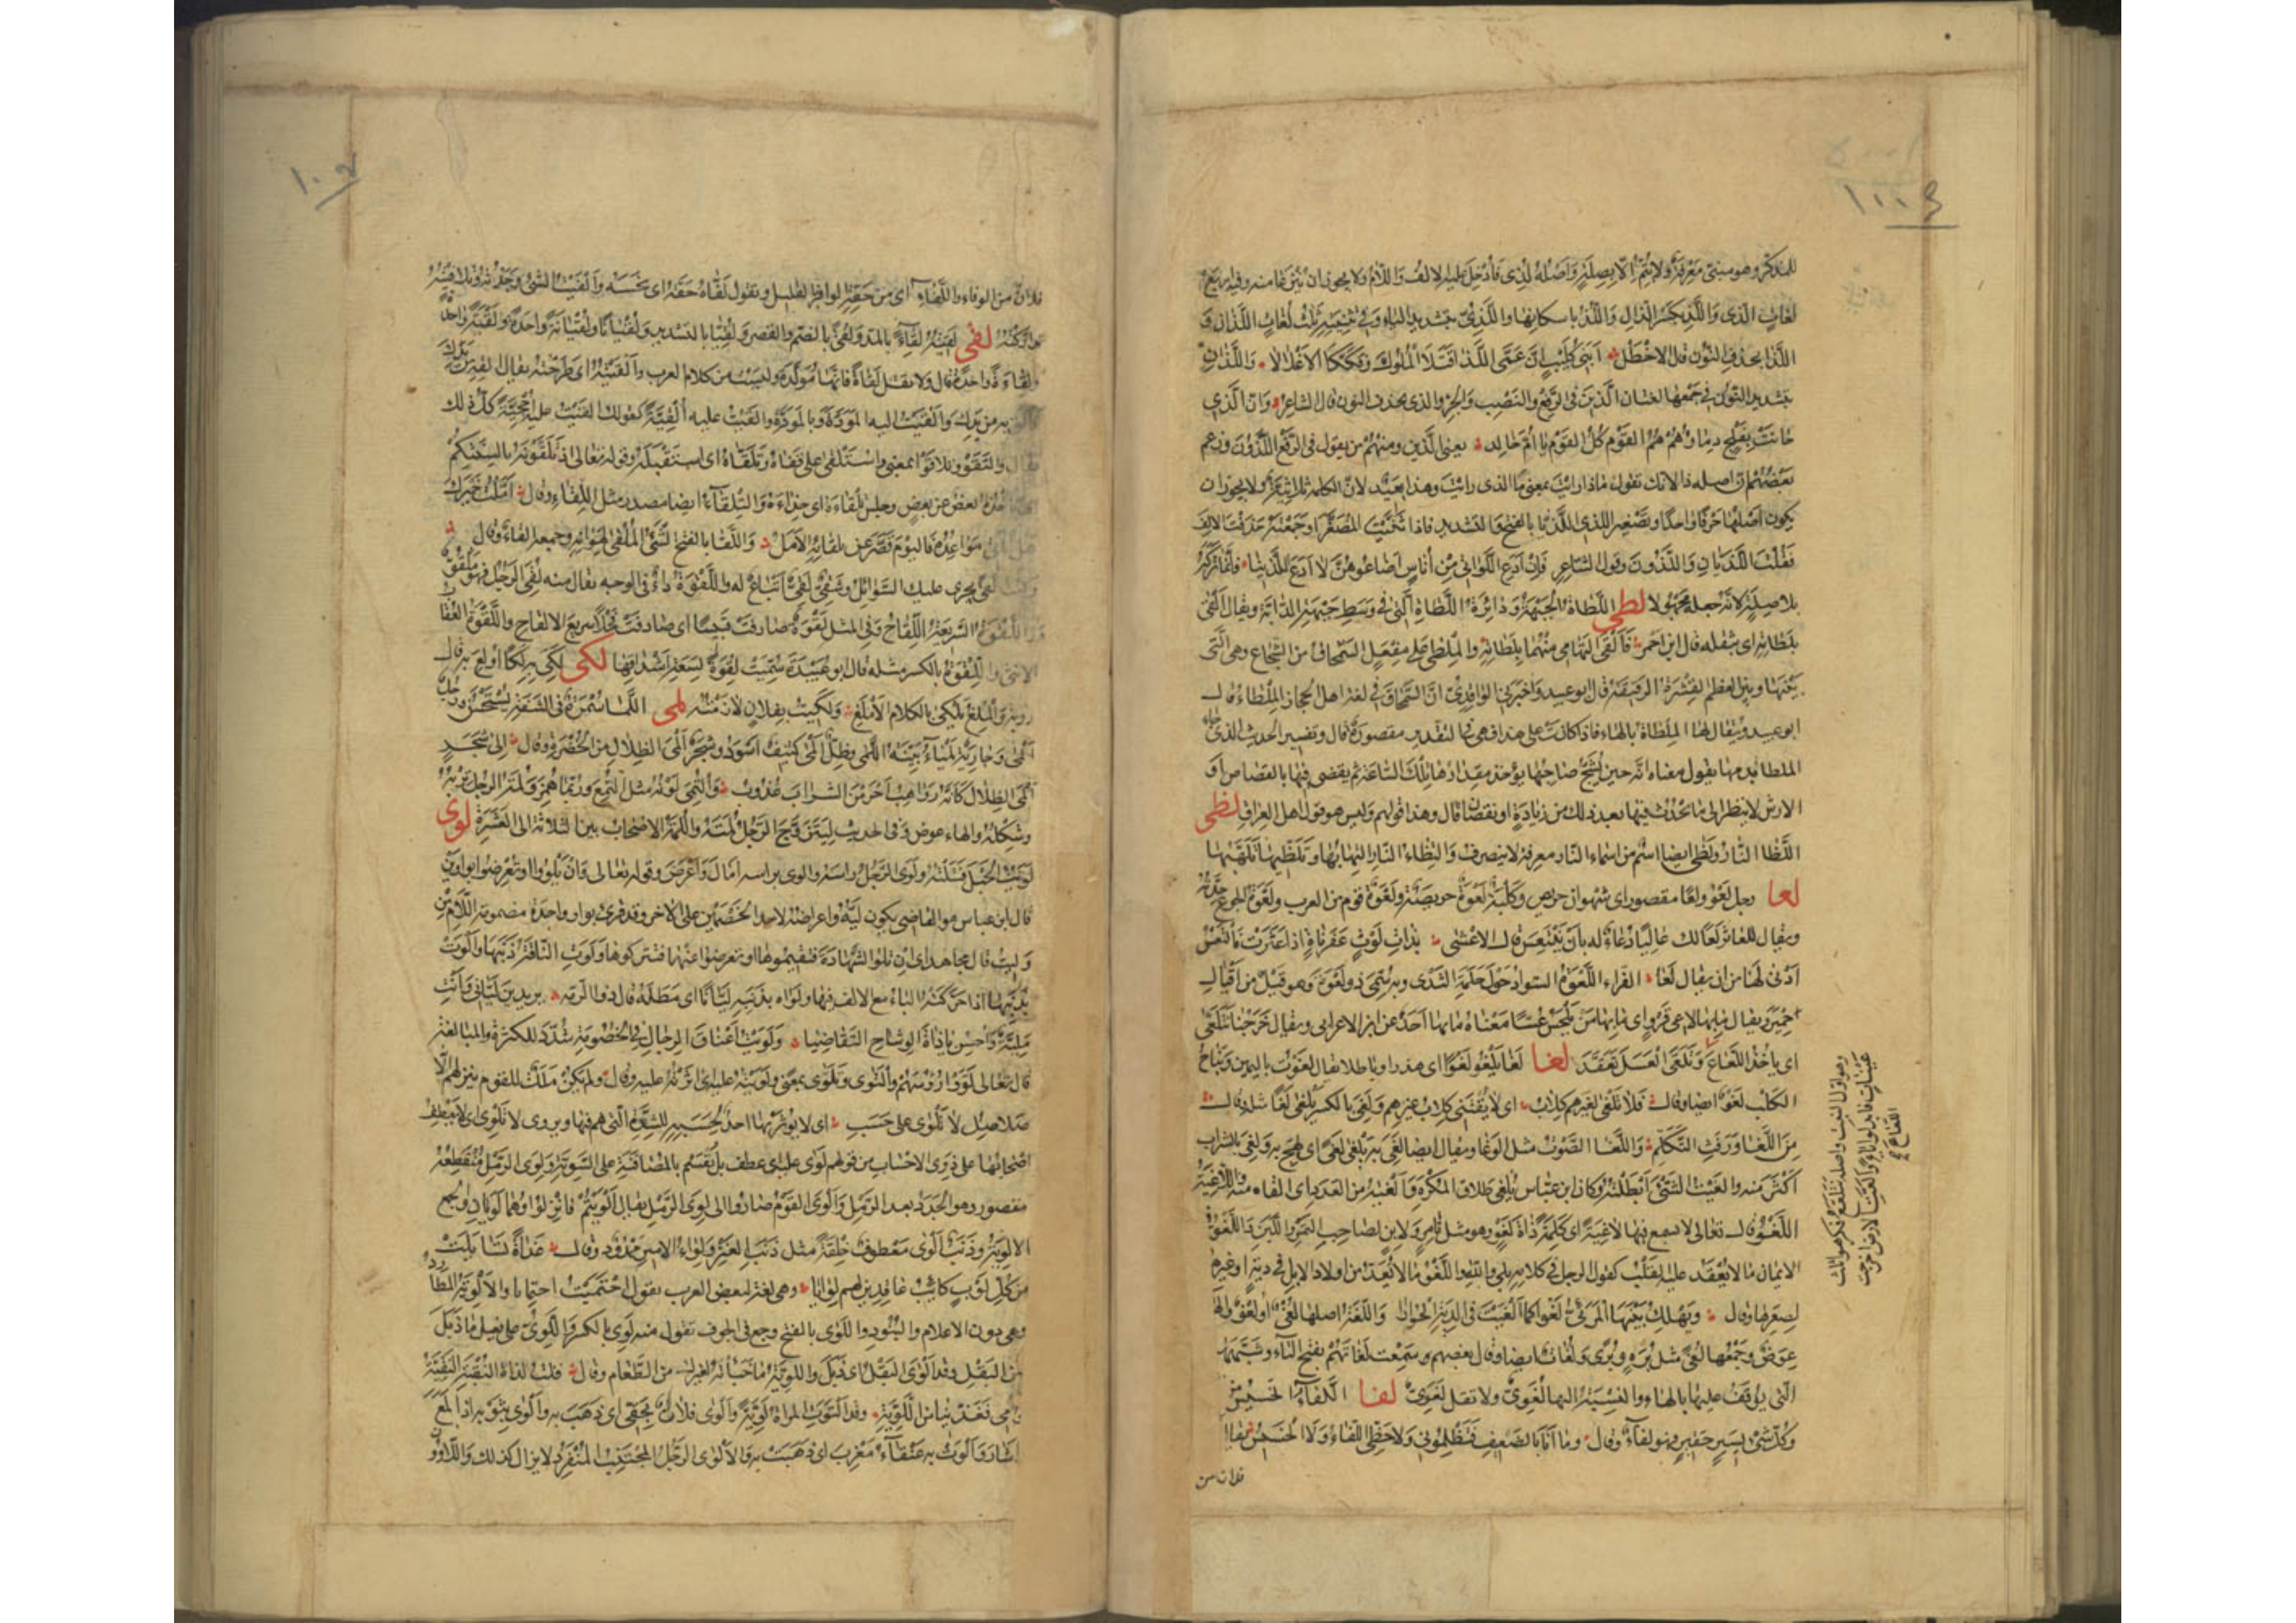 للمذكر وهو مبنىّ معرفة ولا يتمّ الّا بصلة واصله لذى فأدخل عليه الالف واللام ولا يجوز ان ينزعا منه وفيه اربع
لغات الّذى واللّذ بكسر الذال واللّذ باسكانها واللذىّ بتشديد الياء وفى تثنيته ثلث لغات اللذان و
اللذا بحذف النون قال الاخطل ابنى كليب انّ عمّىّ اللذا قتلا الملوك وفككا الاغلالا واللذانّ
بتشديد النون وفى جمعها لغتان الّذين فى الرفع والنصب والجرّ والذى بحذف النون قال الشاعر وانّ الّذى
حانت بفلج دماؤهم هم القوم كلّ القوم يا امّ خالد يعنى الّذين ومنهم من يقول فى الرفع اللذون وزعم
بعضهم انّ اصله ذا لانك تقول ماذا رايت بمعنى ما الذى رايت وهذا بعيد لانّ الكلمة ثلاثيّة ولا يجوز ان
يكون اصلها حرفا واحدا وتصغير الذى اللذيّا بالفتح والتشديد فاذا ثنّيت المصغّر او جمعته حذفت الالف
فقلت اللذيّان واللذيّون وقول الشاعر فان ادع اللواتى من أناس اضاعوهنّ لا ادع الذينا فانّما تركه
بلا صلة لانّه جعله مجهولا لطى اللطاة الجبهة ودائرة اللطاة الّتى فى وسط جبهة الدابة ويقال القى
بلطاته اى بثقله قال ابن احمر فألقى التهامى منهما بلطاته والملطى على مفعل السمحاق من الشجاج وهى الّتى
بينها وبين العظم القشرة الرقيقة قال ابو عبيد واخبرنى الواقدىّ انّ السمحاق فى لغة اهل الحجاز الملطا قال
ابو عبيد ويقال لها الملطاة بالهاء فاذا كانت على هذا فهى فى التقدير مقصورة قال وتفسير الحديث الذى جاء
الملطا بدمها يقول معناه انّه حين يشجّ صاحبها يؤخذ مقدارها تلك الساعة ثم يقضى فيها بالقصاص او
الارش لا ينظر الى ما يحدث فيها بعد ذلك من زيادة او نقصان قال وهذا قولهم وليس هو قول اهل العراق لظى
اللظا النار ولظى ايضا اسم من اسماء النار معرفة لا ينصرف والتظاء النار التهابها وتلظّيها تلهّبها
لعا رجل لعو ولعا مقصور اى شهوان حريص وكلبة لعوة حريصة ولعوة قوم من العرب ولعوة الجوع حدّته
ويقال للعاثر لعا لك عاليا دعاء له بأن ينتعش قال الاعشى بذات لوث عفرناة اذا عثرت فالتعس
ادنى لها من ان يقال لعا الفراء اللعوة السواد حول حلمة الثدى وبه سمّى ذو لعوة وهو قيل من اقيال
حمير ويقال ما بها لاعى قرو اى ما بها من يلحس عسّا معناه ما بها احد عن ابن الاعرابى ويقال خرجنا نتلعّى
اى ياخذ اللعاع وتلعّى العسل تعقّد لغا لغا يلغو لغوا اى هذر او باطلا يقال لغوت باليمين ونباح
الكلب لغو ايضا وقال فلا تلغى لغيرهم كلاب اى لا يقتنى كلاب غيرهم ولغى بالكسر يلغى لغا مثله قال
من اللغا ورفث التكلّم واللغا الصوت مثل الوغا ويقال ايضا لغى به يلغى لغى اى لهج به ولغى بالشراب
اكثر منه والغيت الشئ ابطلته وكان ابن عباس يلغى طلاق المكره والغيته من العدد اى القاه منه واللاغية
اللغو قال تعالى لا تسمع فيها لاغية اى كلمة ذاة لغو وهو مثل تامر ولابن لصاحب التمر واللبن واللغو فى
الايمان ما لا يعقد عليه القلب كقول الرجل فى كلامه بلى والله واللغو ما لا يعدّ من اولاد الابل فى دية او غيره
لصغرها وقال ويهلك بينها المرئىّ لغوا كما الغيت فى الدية الحوارا واللغة اصلها لغى او لغو والهاء
عوض وجمعها لغى مثل برة وبرى ولغات ايضا وقال بعضهم سمعت لغاتهم بفتح التاء وشبّهها
الّتى يوقف عليها بالهاء والنسبة اليها لغوىّ ولا تقل لغوىّ لفا اللفاء الخسيس من
وكلّ شئ يسير حقير فهو لفاء وقال وما انا بالضعيف فتظلمونى ولا حظّى اللفاء ولا الخسيس يقال
فلان من
عيينات فابدلوا ياء والعت الارض اخرجت
اللعاع صح
فلان من الوفاء واللفاء اى من حقّه الوافر بالقليل وتقول لفّاه حقّه اى بخسه والفيت الشئ وجدته وتلافيته
تداركته لقى لقيته لقاء بالمدّ ولقى بالضم والقصر ولقيّا بالتشديد ولقيانا ولقيانة واحدة ولقية واحدة
ولقاءة واحدة قال ولا تقل لقاة فانّها مولّدة وليست من كلام العرب والقيته اى طرحته يقال القه من يدك
والق به من يدك والقيت اليه المودّة وبالمودّة والقيت عليه ألقيّة كقولك القيت عليه احجيّة كلّ ذلك
يقال والتقوا وتلاقوا بمعنى واستلقى على قفاه وتلقّاه اى استقبله وقوله تعالى اذ تلقّونه بالسنتكم
اى ياخذ بعض عن بعض وجلس تلقاءه اى حذاءه والتلقاء ايضا مصدر مثل اللقاء وقال امّلت خيرك
هل تأتى مواعده فاليوم قصّر عن تلقائه الامل واللقا بالفتح الشئ الملقى لهوانه وجمعه القاء وقال
وكنت لقى تجرى عليك السوائل وشقىّ لقىّ اتباع له واللقوة داء فى الوجه يقال منه لقى الرجل فهو ملقوّ
واللقوة الناقة السريعة اللقاح وفى المثل لقوة صادفت قبيسا اى صادفت فحلا سريع الالقاح واللقوة العقاب
الانثى واللقوة بالكسر مثله قال ابو عبيدة سمّيت لقوة لسعة اشداقها لكى لكى به لكا اولع به قال
روبة والملغ يلكى بالكلام الاملغ ولكيت بفلان لازمته لمى اللّما سمرة فى الشفة تستحسن ورجل
المى وجارية لمياء بيّنة اللمى وظلّ المى كثيف اسود وشجر المى الظلال من الخضرة وقال الى شجر
المى الظلال كانّه رواهب احرمن الشراب عذوب والتمى لونه مثل التمع وربّما همز ولمة الرجل تربه
وشكله والهاء عوض وفى الحديث ليتزوّج الرجل لمته واللمة الاصحاب بين الثلاثة الى العشرة لوى
لويت الحبل فتلته ولوى الرجل راسه والوى براسه امال واعرض وقوله تعالى وان تلووا او تعرضوا بواوين
قال ابن عباس هو القاضى يكون ليّه واعراضه لاحد الخصمين على الآخر وقد قرئ بواو واحدة مضمومة اللام من
وليت قال مجاهد اى ان تلوا الشهادة فتقيموها او تعرضوا عنها فتتركوها ولوت الناقة ذنبها والوت
بذنبها اذا حرّكته الباء مع الالف فيها ولواه بدينه ليّانا اى مطله قال ذو الرمة تريدين ليّانى وانت
مليّة واحسن يا ذاة الوشاح التقاضيا ولويت اعناق الرجال فى الخصومة شدّد للكثرة والمبالغة
قال تعالى لوّوا رؤسهم والتوى وتلوّى بمعنى ولويت عليه اى اثرته عليه وقال ولم يكن ملك للقوم ينزلهم الّا
صلاصل لا تلوى على حسب اى لا يؤثر بها احد لحسبه للشدّة الّتى هم فيها ويروى لا تلوى اى لا تعطف
اصحابها على ذوى الاحساب من قولهم لوى عليه اى عطف بل تقسم بالمصافنة على السويّة ولوى الرمل منقطعه
مقصور وهو الجدد بعد الرمل والوى القوم صاروا الى لوى الرمل يقال الويتم فانزلوا وهما لويان والجمع
الالوية وذنب الوى معطوف خلقة مثل ذنب العنز ولواء الامير ممدود وقال غداة تسايلت
من كلّ اوب كتائب عاقدين لهم لوايا وهى لغة لبعض العرب تقول احتميت احتمايا والالوية المطارد
وهى دون الاعلام والبنود واللوى بالفتح وجع فى الجوف تقول منه لوى بالكسر واللوىّ على فعيل ما ذبل
من البقل وقد الوى البقل اى ذبل واللويّة ما خبأته لغيرك من الطعام وقال قلت لذاة النقبة النقيّة
قومى فغدّينا من اللويّة وقد التوت المراة لويّة والوى فلان بحقّى اى ذهب به والوى بثوبه اذا لمع
اشار والوت به عنقاء مغرب اى ذهبت به والالوى الرجل المجتنب المنفرد لا يزال كذلك واللاوون